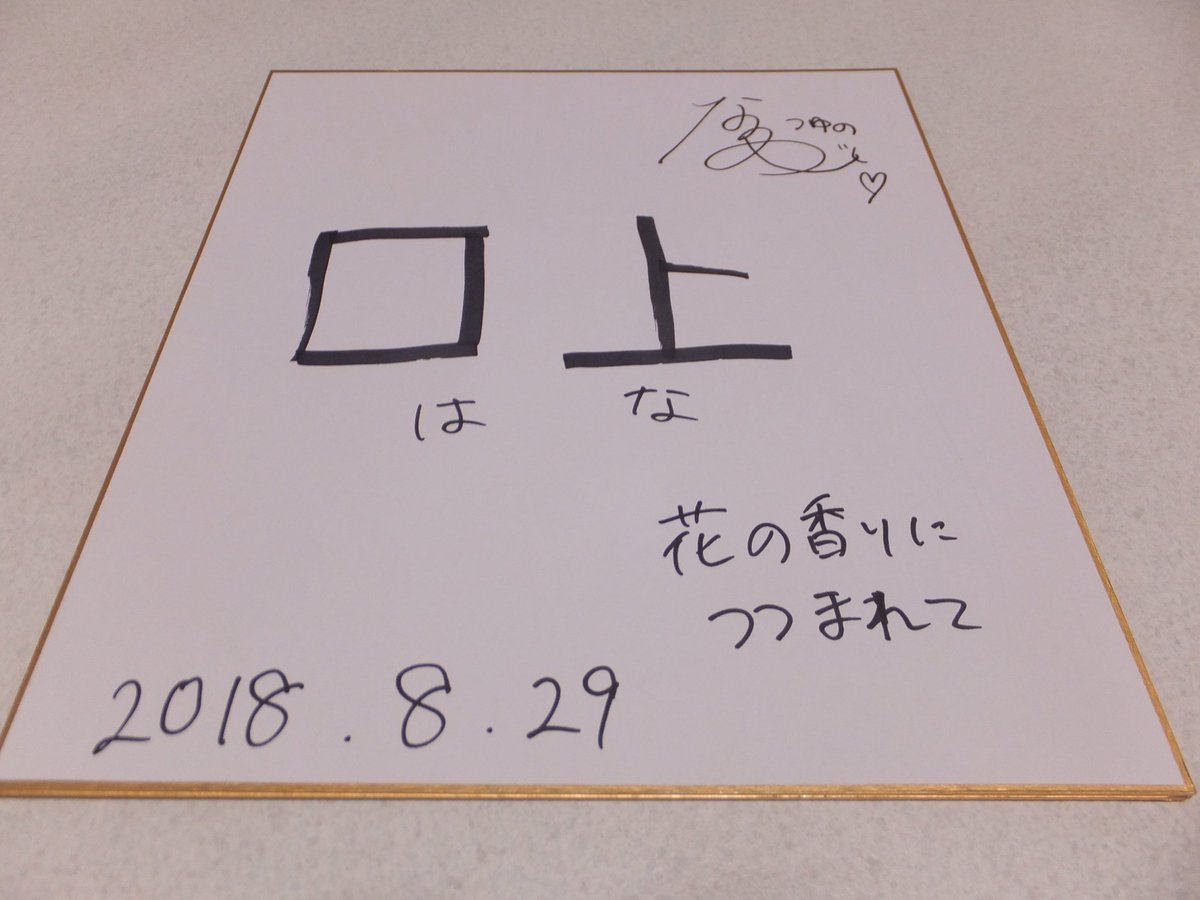 つゆの
口上
はな
花の香りに
つつまれて
2018.8.29